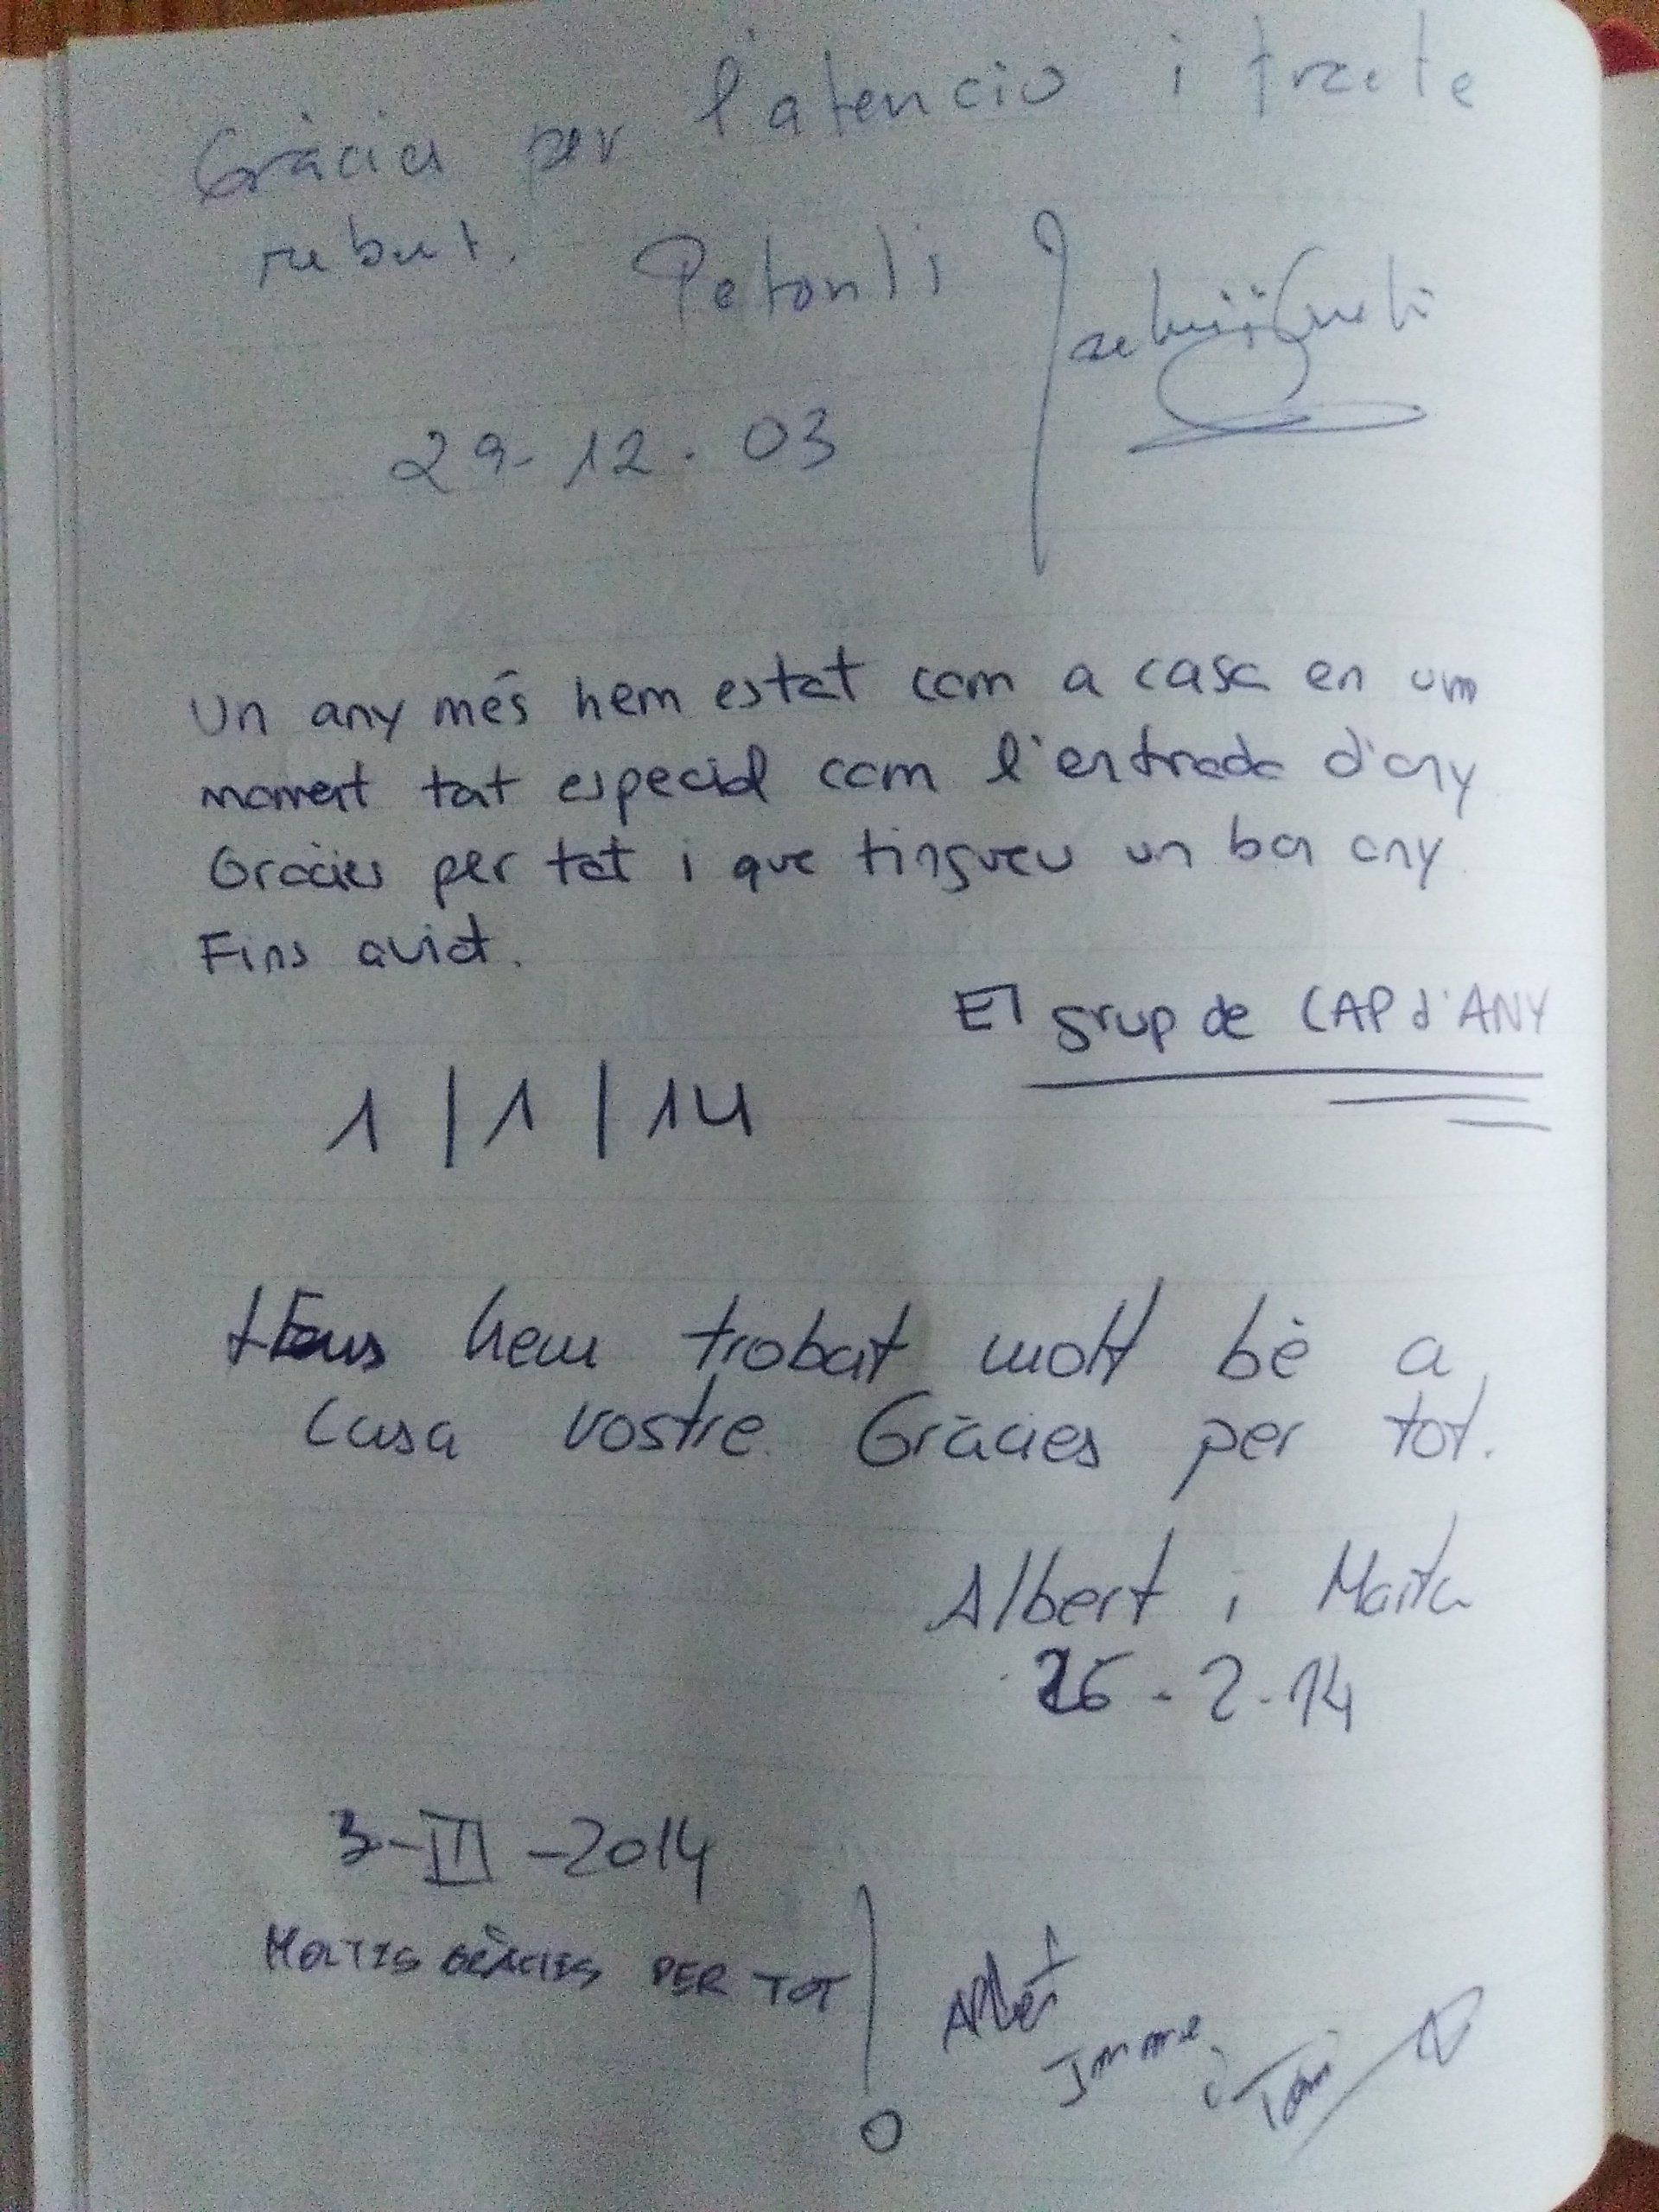 Gràcies per l'atencio i tracte
rebut. Petonti
29-12.03
Un any més hem estat com a casa en um
moment tat especial com l'entrada d'any
Gràcies per tot i que tingueu un bon any
Fins aviat.
El grup de CAP d'ANY
1/1/14
Ens hem trobat molt bè a
casa vostre. Gràcies per tot.
Albert i Marta
26-2-14
3-III-2014
MOLTES GRÀCIES PER TOT!
Albert
Imma
i Toni